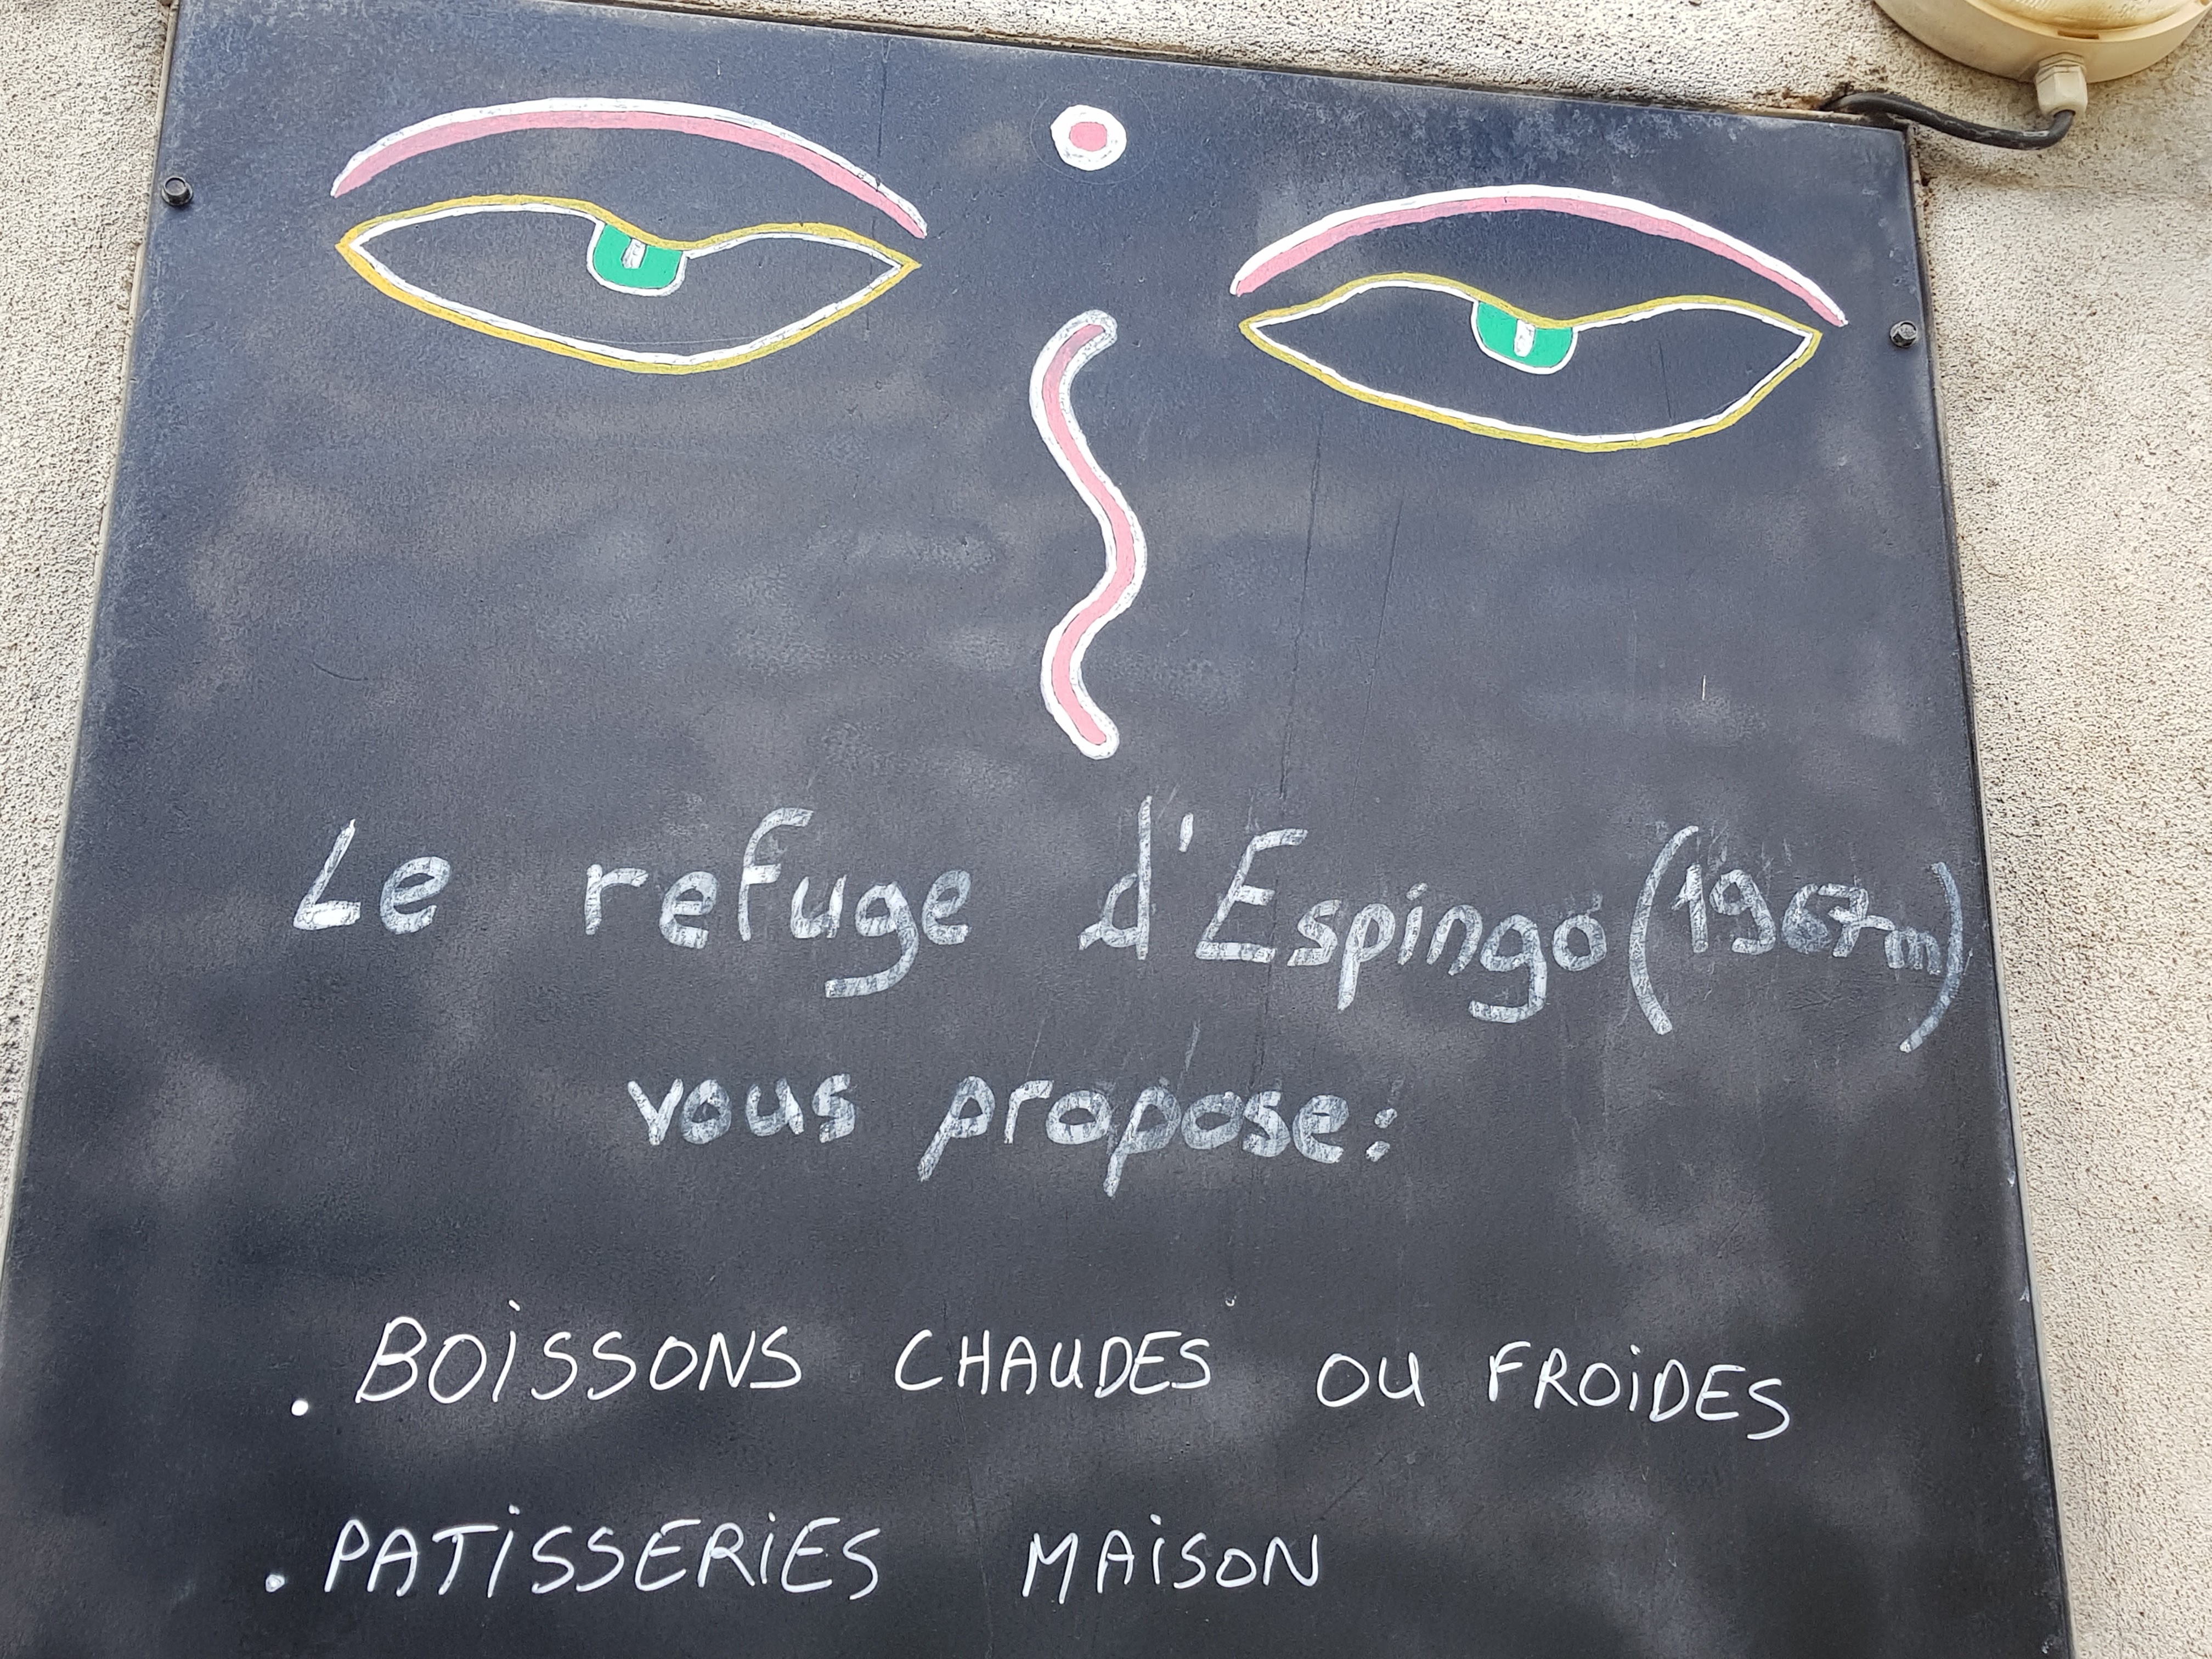 Le refuge d'Espingo (1967m)
vous propose:
. BOiSSONS CHAUDES OU FROiDES
. PATiSSERiES MAiSON